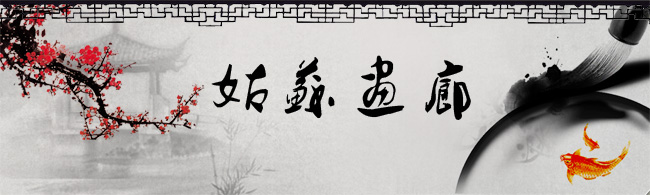 姑蘇畫廊